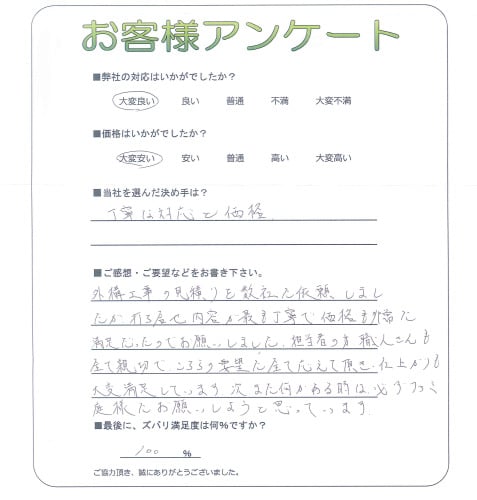 お客様アンケート
■弊社の対応はいかがでしたか？
大変良い 良い 普通 不満 大変不満
■価格はいかがでしたか？
大変安い 安い 普通 高い 大変高い
■当社を選んだ決め手は？
丁寧な対応と価格
■ご感想・ご要望などをお書き下さい。
外構工事の見積りを数社に依頼しまし
たが 内容が最も丁寧で価格も非常に
満足だったのでお願いしました。担当者の方 職人さんも
親切で、こちらの要望に全て応えて頂き、仕上がりも
大変満足しています。次また何かある時は必ず
庭様にお願いしようと思っています。
■最後に、ズバリ満足度は何％ですか？
100 ％
ご協力頂き、誠にありがとうございました。